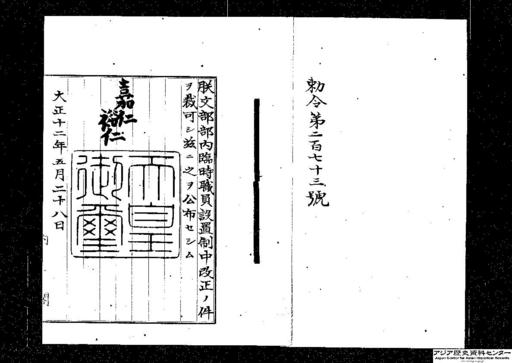 勅令第二百七十三號
朕文部部內臨時職員設置制中改正ノ件
ヲ裁可シ茲ニ之ヲ公布セシム
嘉仁
裕仁
天皇
御璽
大正十二年五月二十八日
內閣
アジア歴史資料センター
Japan Center for Asian Historical Records